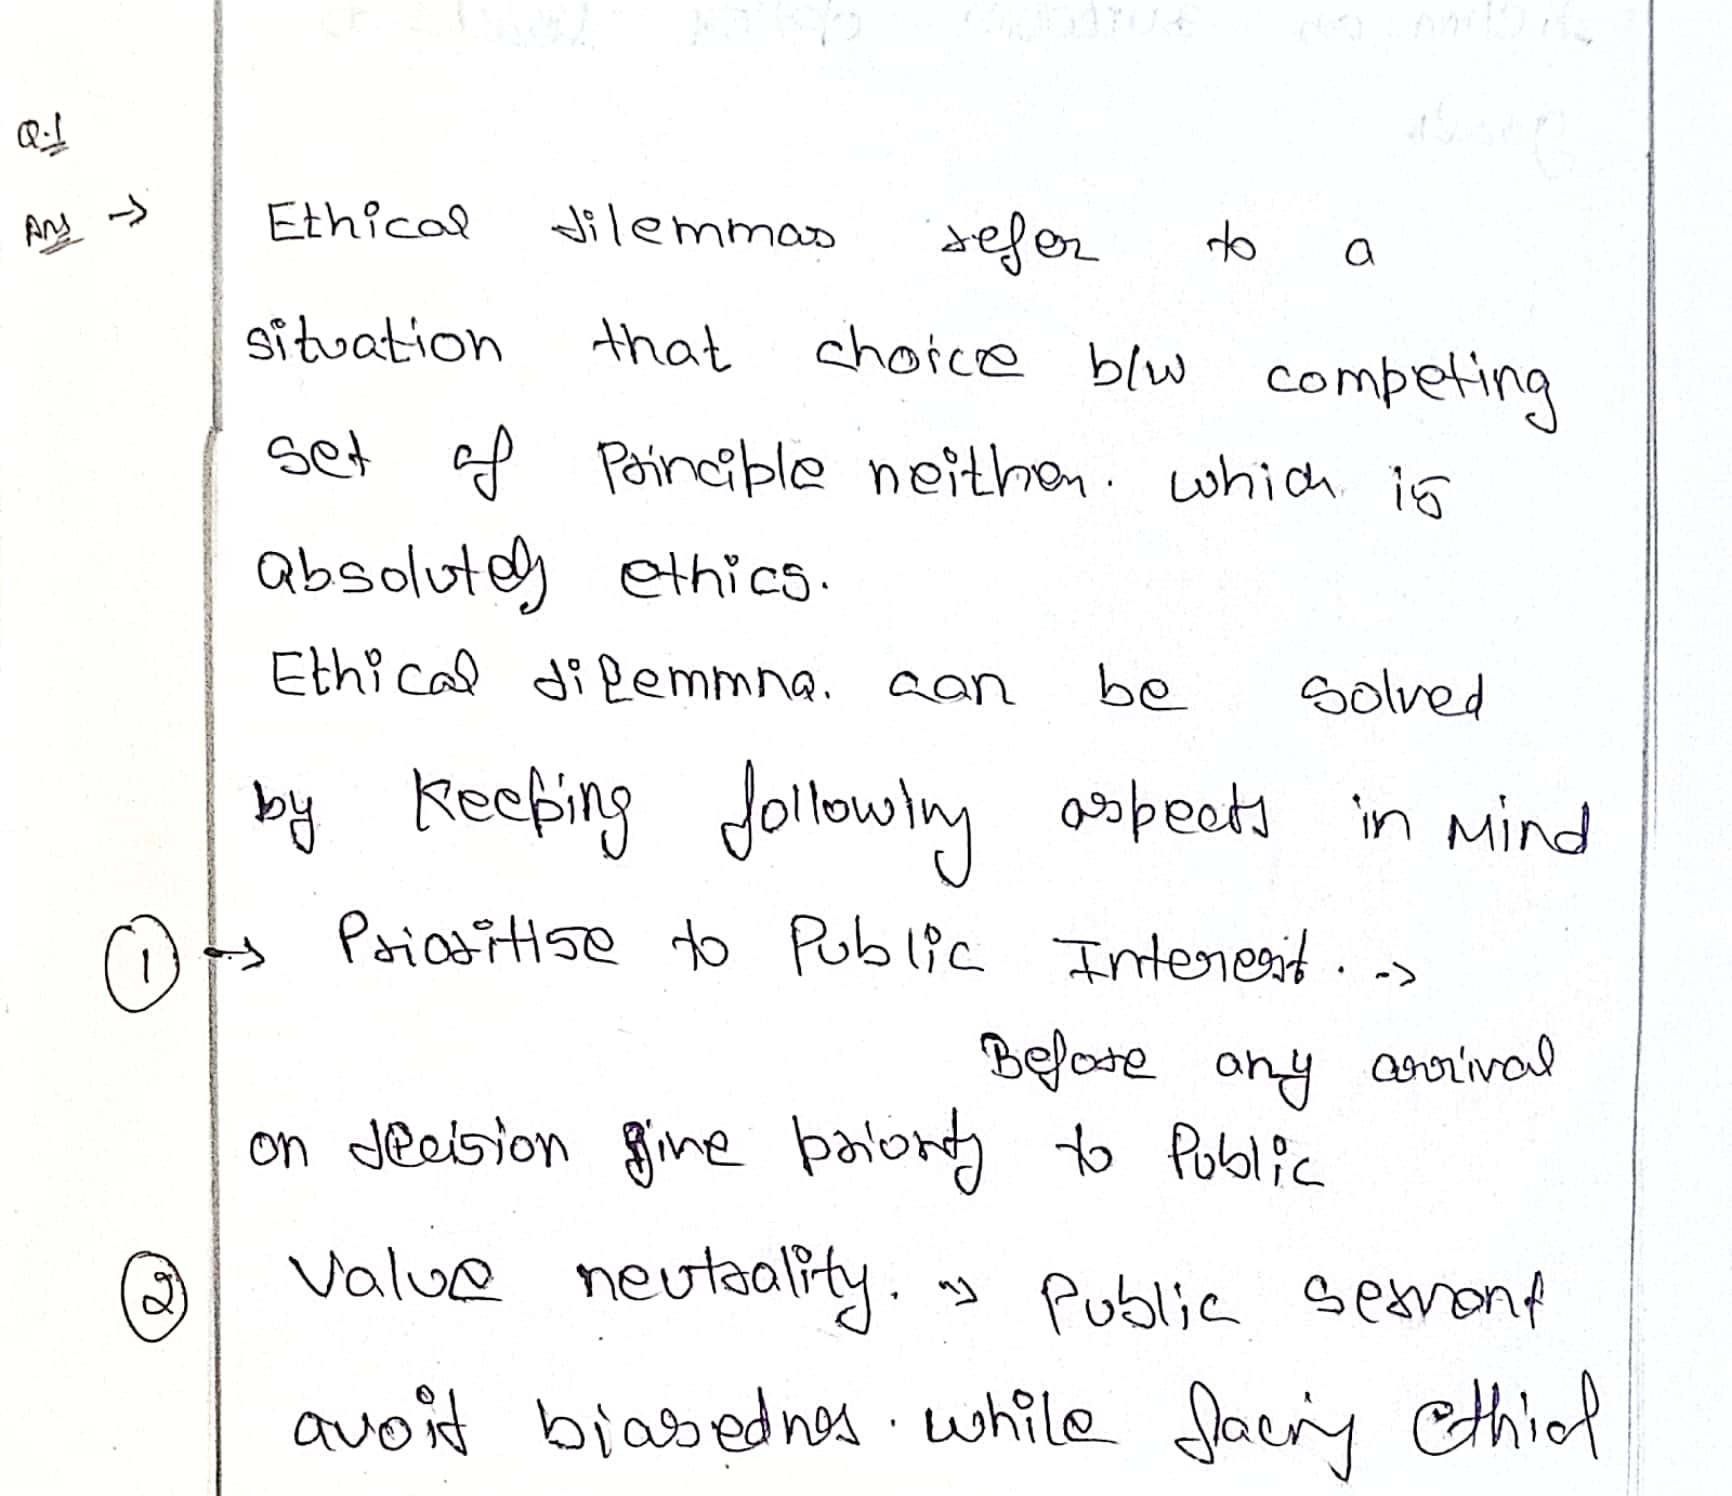 Q.1
Ans → Ethical dilemmas refer to a
situation that choice b/w competing
set of Principle neither. which is
absolutely ethics.
Ethical dilemmna. can be solved
by keeping following aspects in Mind
① → Prioritise to Public Interest. ->
Before any arrival
on decision give priority to Public
② Value neutrality. → Public servant
avoid biasednes. while facing ethicl